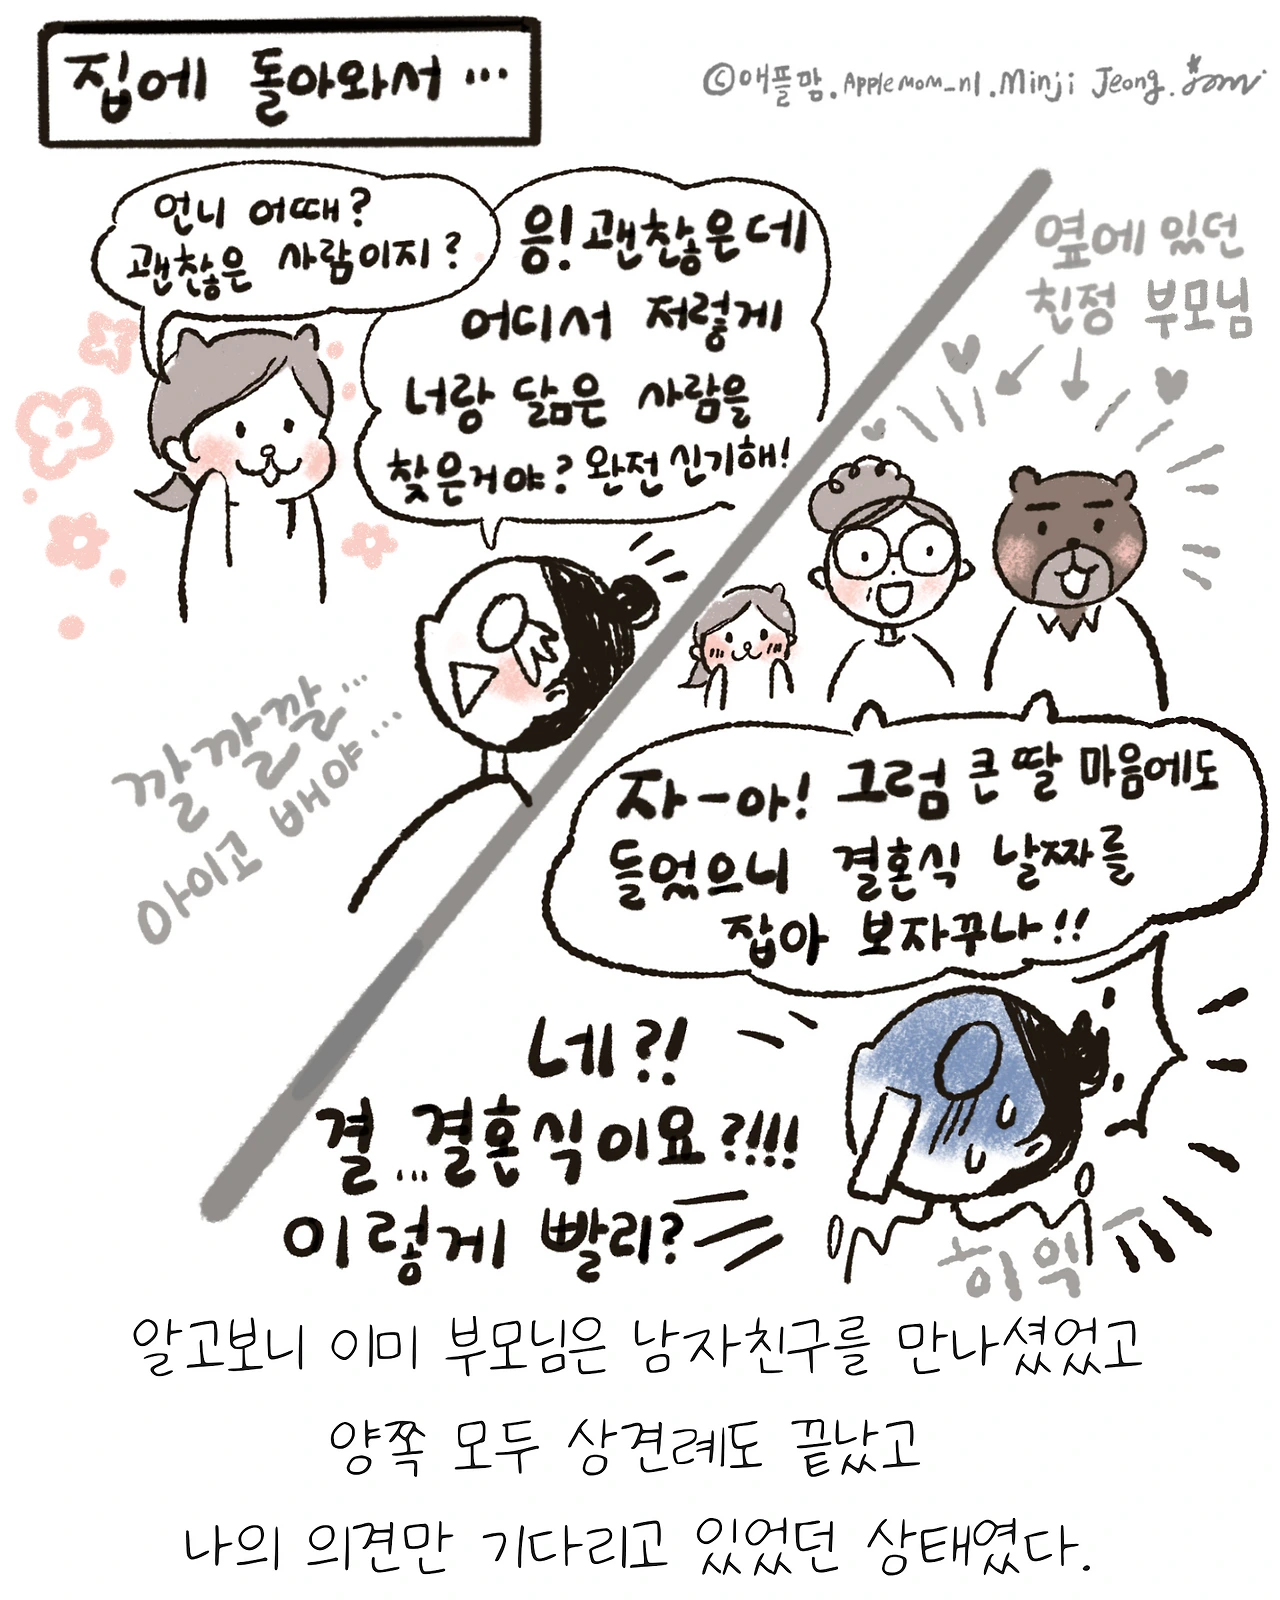 집에 돌아와서...
©애플맘.Applemom_nl.Minji Jeong.
언니 어때?
괜찮은 사람이지?
응! 괜찮은데
어디서 저렇게
너랑 닮은 사람을
찾은거야? 완전 신기해!
깔깔깔...
아이고 배야...
옆에 있던
친정 부모님
자-아! 그럼 큰 딸 마음에도
들었으니 결혼식 날짜를
잡아 보자꾸나!!
네?!
결...결혼식이요?!!!
이렇게 빨리?
히익
알고보니 이미 부모님은 남자친구를 만나셨었고
양쪽 모두 상견례도 끝났고
나의 의견만 기다리고 있었던 상태였다.